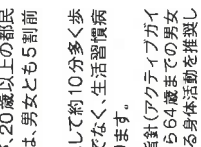 、20歳以上の都民
は、男女とも5割前
して約10分多く歩
でなく、生活習慣病
ります。
指針(アクティブガイ
ら64歳までの男女
る身体活動を推奨し